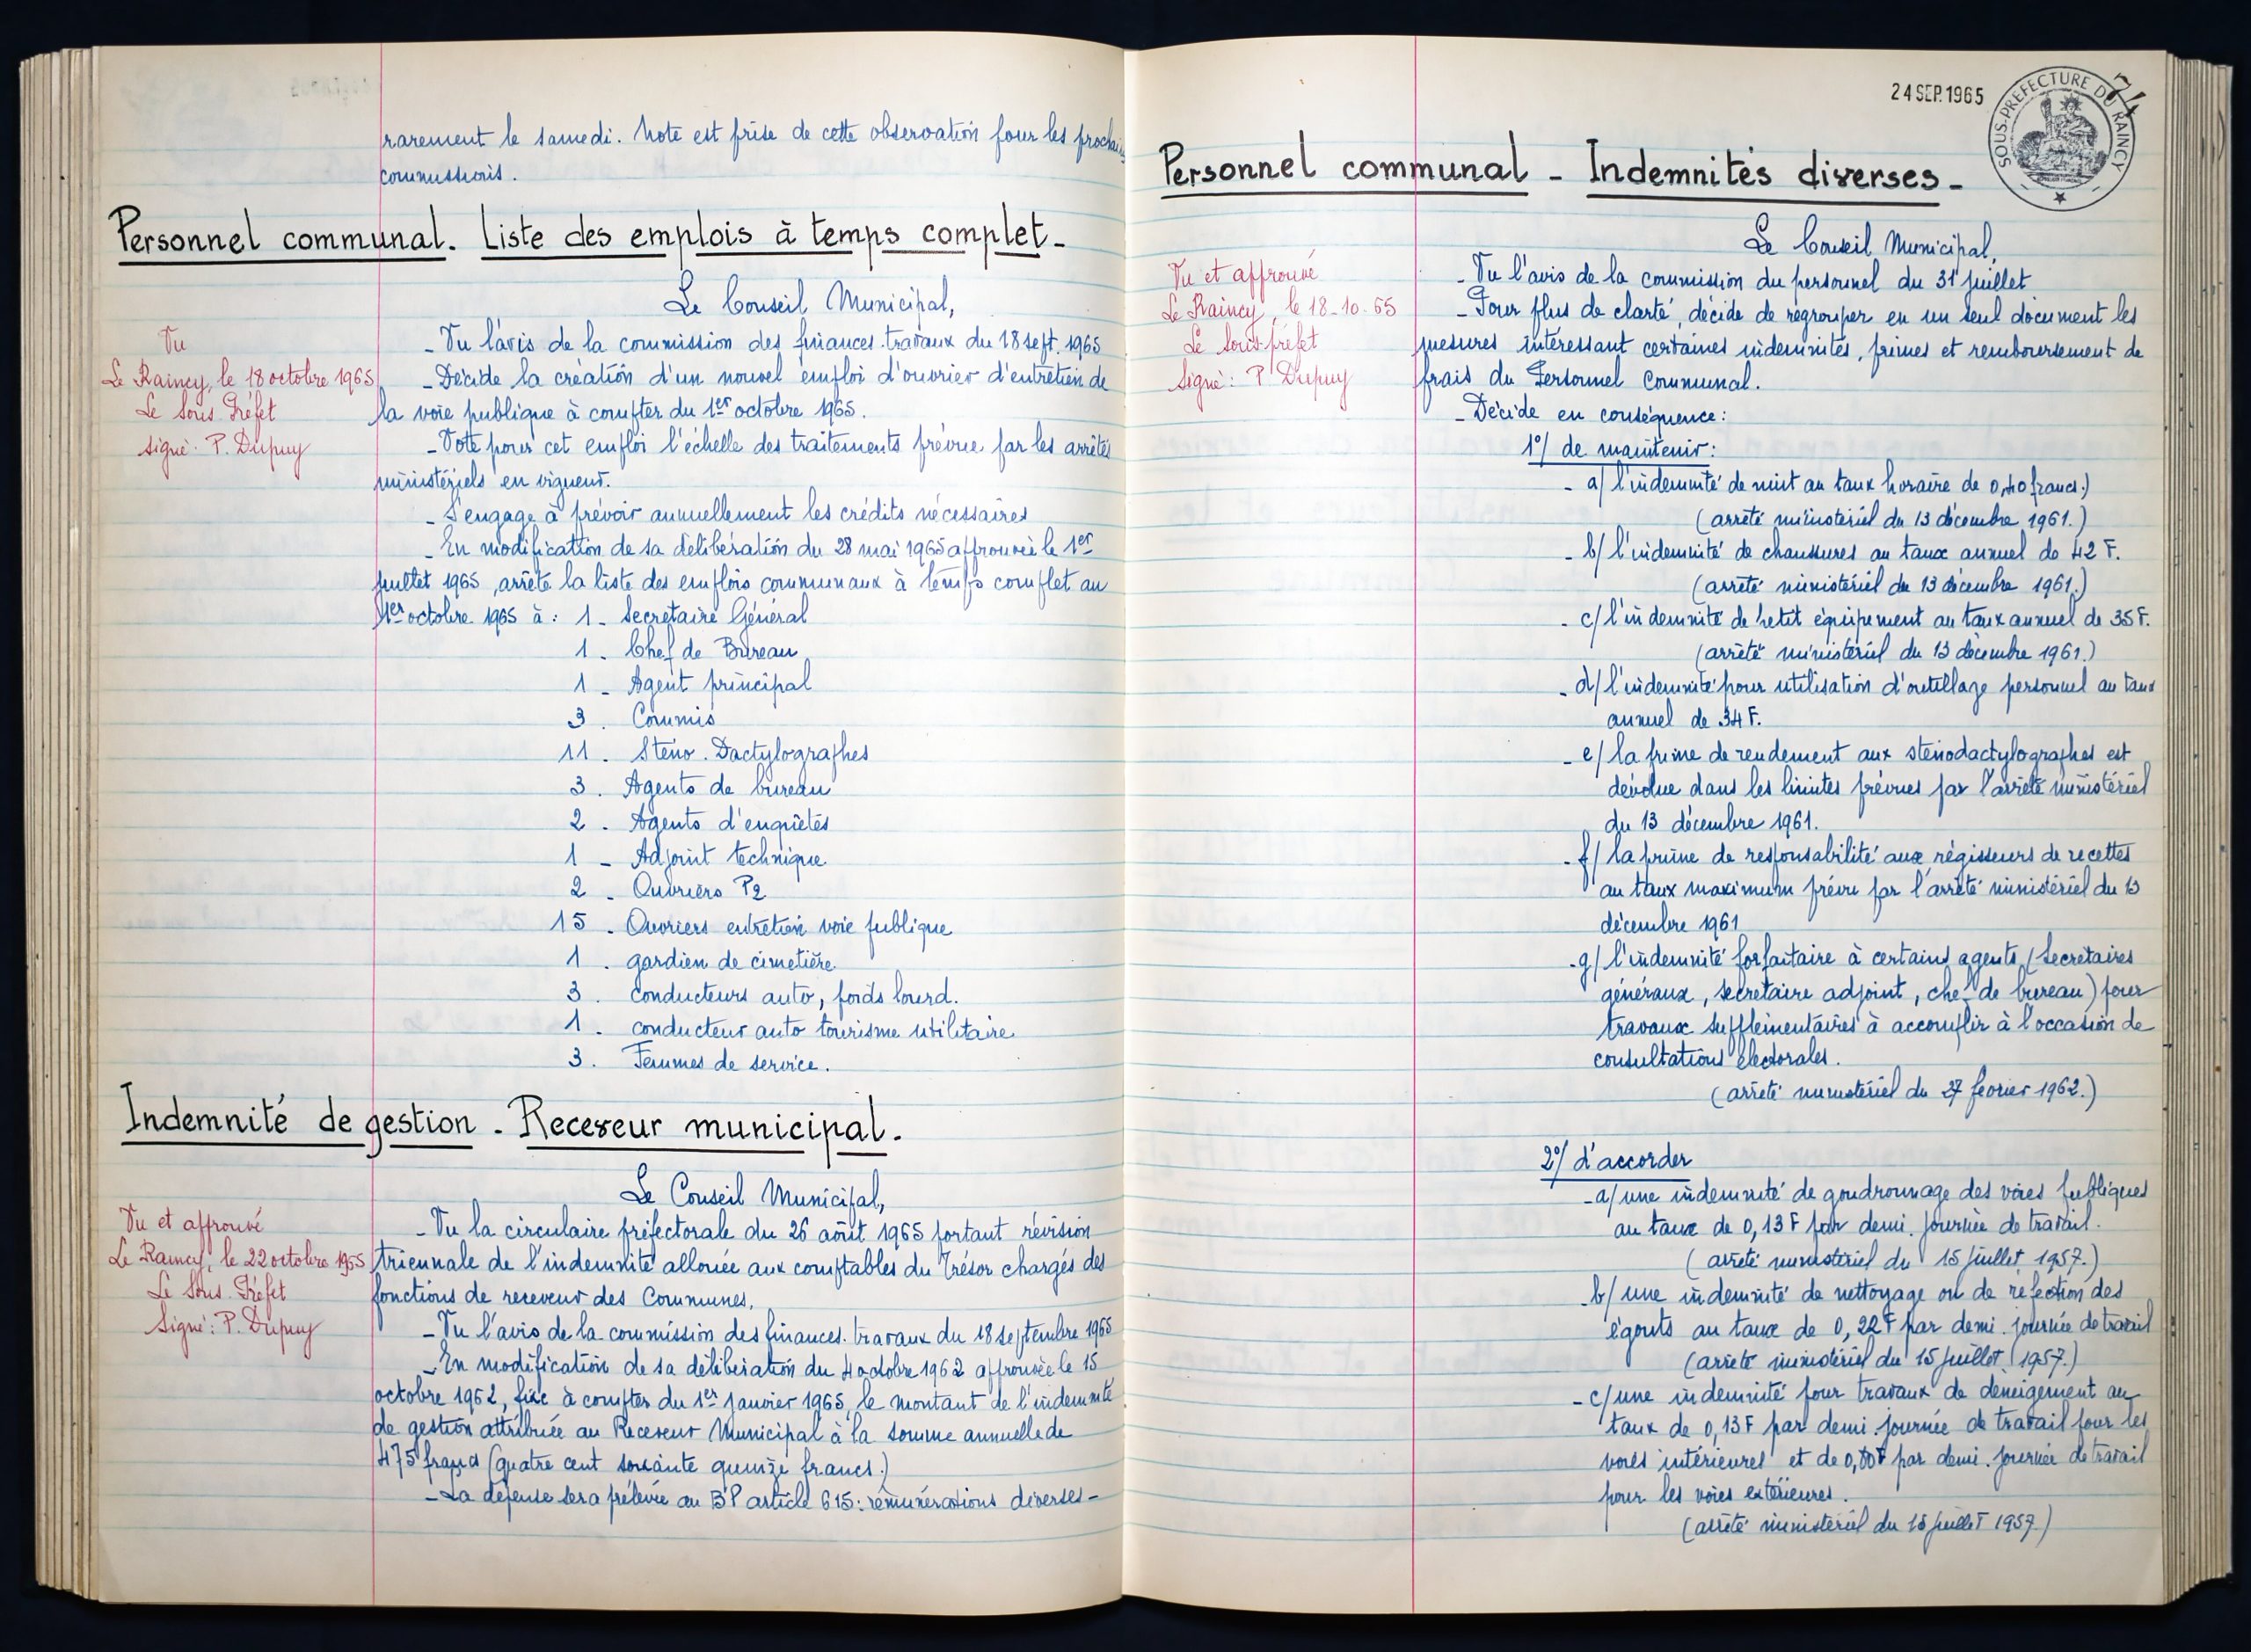 rarement le samedi. Note est prise de cette observation pour les prochai
commissions.
Personnel communal. Liste des emplois à temps complet_
Le Conseil Municipal,
Vu
Le Raincy, le 18 octobre 1965
Le Sous-Préfet
signé: P. Dupuy
_ Vu l'avis de la commission des finances-travaux du 18 sept. 1965
_ Décide la création d'un nouvel emploi d'ouvrier d'entretien de
la voie publique à compter du 1er octobre 1965.
_ Vote pour cet emploi l'échelle des traitements prévue par les arrêtés
ministériels en vigueur.
_ S'engage à prévoir annuellement les crédits nécessaires
_ En modification de sa délibération du 28 mai 1965 approuvée le 1er
juillet 1965, arrête la liste des emplois communaux à temps complet au
1er octobre 1965 à : 1 - Secrétaire Général
1 - Chef de Bureau
1 - Agent principal
3 - Commis
11 - Sténo-Dactylographes
3 - Agents de bureau
2 - Agents d'enquêtes
1 - Adjoint technique
2 - Ouvriers P2
15 - Ouvriers entretien voie publique
1 - gardien de cimetière
3 - conducteurs auto, poids lourd.
1 - conducteur auto tourisme utilitaire
3 - Femmes de service.
Indemnité de gestion - Receveur municipal.
Le Conseil Municipal,
Vu et approuvé
Le Raincy, le 22 octobre 1965
Le Sous-Préfet
Signé: P. Dupuy
_ Vu la circulaire préfectorale du 26 août 1965 portant révision
triennale de l'indemnité allouée aux comptables du Trésor chargés des
fonctions de receveur des Communes,
_ Vu l'avis de la commission des finances-travaux du 18 septembre 1965
_ En modification de sa délibération du 4 octobre 1962 approuvée le 15
octobre 1962, fixe à compter du 1er janvier 1965, le montant de l'indemnité
de gestion attribuée au Receveur Municipal à la somme annuelle de
475 francs (quatre cent soixante quinze francs.)
_ La dépense sera prélevée au BP article 615: rémunérations diverses_
24 SEP. 1965
SOUS-PREFECTURE DU RAINCY
74
Personnel communal - Indemnités diverses_
Le Conseil Municipal,
Vu et approuvé
Le Raincy, le 18-10-65
Le Sous-préfet
Signé: P Dupuy
_ Vu l'avis de la commission du personnel du 31 juillet
_ Pour plus de clarté, décide de regrouper en un seul document les
mesures intéressant certaines indemnités, primes et remboursement de
frais du Personnel Communal.
_ Décide en conséquence:
1°/ de maintenir:
_ a/ l'indemnité de nuit au taux horaire de 0,40 francs.)
(arrêté ministériel du 13 décembre 1961.)
_ b/ l'indemnité de chaussures au taux annuel de 42 F.
(arrêté ministériel du 13 décembre 1961.)
_ c/ l'indemnité de petit équipement au taux annuel de 35 F.
(arrêté ministériel du 13 décembre 1961.)
_ d/ l'indemnité pour utilisation d'outillage personnel au taux
annuel de 34 F.
_ e/ la prime de rendement aux sténodactylographes est
dévolue dans les limites prévues par l'arrêté ministériel
du 13 décembre 1961.
_ f/ la prime de responsabilité aux régisseurs de recettes
au taux maximum prévu par l'arrêté ministériel du 13
décembre 1961
_ g/ l'indemnité forfaitaire à certains agents (Secrétaires
généraux, secrétaire adjoint, chef de bureau) pour
travaux supplémentaires à accomplir à l'occasion de
consultations électorales.
(arrêté ministériel du 27 février 1962.)
2°/ d'accorder
_ a/ une indemnité de goudronnage des voies publiques
au taux de 0,13 F par demi-journée de travail.
(arrêté ministériel du 15 juillet 1957.)
_ b/ une indemnité de nettoyage ou de réfection des
égouts au taux de 0,22 F par demi-journée de travail
(arrêté ministériel du 15 juillet 1957.)
_ c/ une indemnité pour travaux de déneigement au
taux de 0,13 F par demi-journée de travail pour les
voies intérieures et de par demi-journée de travail
pour les voies extérieures.
(arrêté ministériel du 15 juillet 1957.)